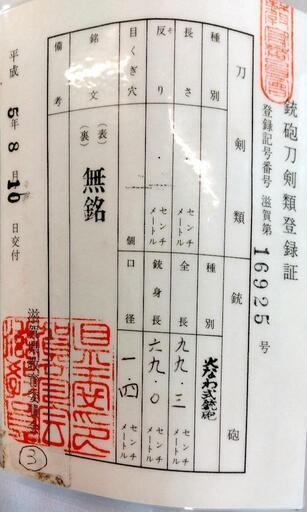 銃砲刀剣類登録証
登録記号番号 滋賀第 16925 号
刀剣類
銃砲
種別
長さ センチメートル
反り そ センチメートル
目くぎ穴 個
銘文 (表) 無銘
(裏)
備考
種別 火なわ式銃砲
全長 九九・三 センチメートル
銃身長 六九・〇 センチメートル
口径 一・四 センチメートル
平成 5年 8月 10日交付
滋賀県教育委員会
3